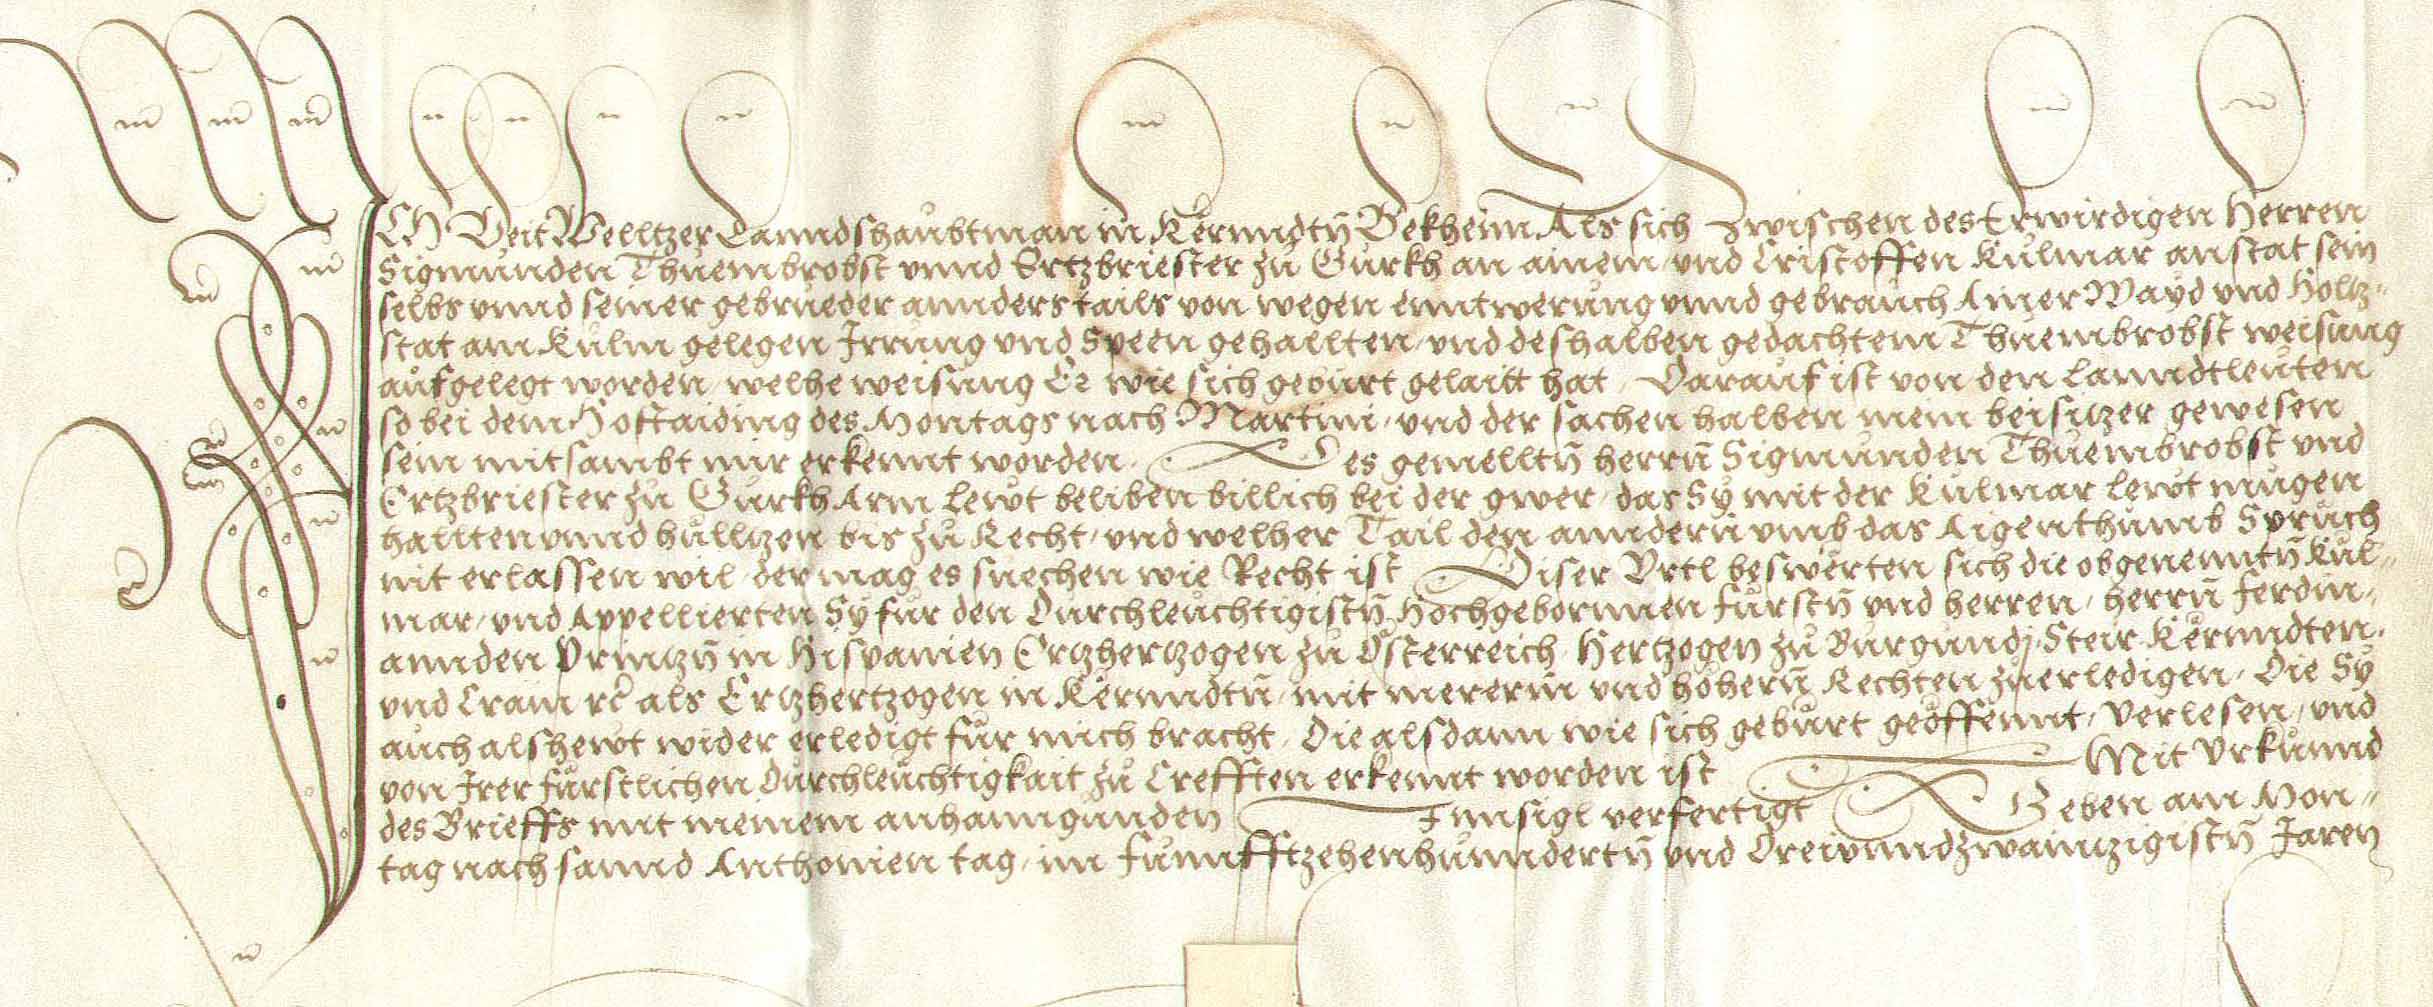 ICH Veit Welltzer Lanndshaŭbtman in Kërnndtn̄ Bekhenn Als sich Zwischen des Erwirdigen Herren
Sigmŭnden Thŭembrobst vnnd Ertzbriester zŭ Gŭrkh an ainem vnd Cristoffen Kŭlmar anstat sein
selbs vnnd seiner gebrŭeder annders tails von wegen enntwerŭng vnnd gebraŭch Ainer Wayd vnd Holtz-
stat am Kŭlm gelegen Irrŭng vnd Speen gehallten vnd deshalben gedachtem Thŭembrobst weisŭng
aŭfgelegt worden welhe weisŭng Er wie sich gebŭrt gelaitt hat Daraŭf ist von den Lanndtleŭten
so bei dem Hoftaiding des Montags nach Martini vnd der sachen halben mein beisitzer gewesen
sein mitsambt mir erkennt worden Des gemelltn̄ herrn̄ Sigmŭnden Thŭembrobst vnd
Ertzbriester zŭ Gŭrkh Arm lewt beliben billich bei der gwer das Sÿ mit der Kŭlmar lewt mŭgen
hallten vnnd hŭlltzen bis zŭ Recht vnd welher Tail den anndern̄ vmb das Aigenthŭmb Sprŭch
nit erlassen wil der mag es sŭechen wie Recht ist Diser Vrtl beswërten sich die obgenenntn̄ Kŭl-
mar vnd Appellierten Sÿ fŭr den Dŭrchleŭchtigistn̄ Hochgebornnen Fŭrstn̄ vnd herren herrn̄ Ferdin-
annden Printzn̄ in Hispanien Ertzhertzogen zŭ Österreich Hertzogen zŭ Bŭrgŭndj Steir Kërnndten
vnd Crain rc̄ als Ertzhertzogen in Kërnndtn̄ mit mererm vnd höhern̄ Rechten zŭerledigen Die Sÿ
aŭch alshewt wider erledigt fŭr mich bracht Die alsdann wie sich gebŭrt geöffennt verlesen vnd
von Irer fŭrstlichen Dŭrchleŭchtigkait zŭ Crefften erkennt worden ist Mit Vrkŭnnd
des Brieffs mit meinem anhanngŭnden Innsigl verfertigt Geben am Mon-
tag nach sannd Anthonien tag im Fŭnnfftzehenhŭnndertn̄ vnd Dreivnndzwaintzigistn̄ Jaren